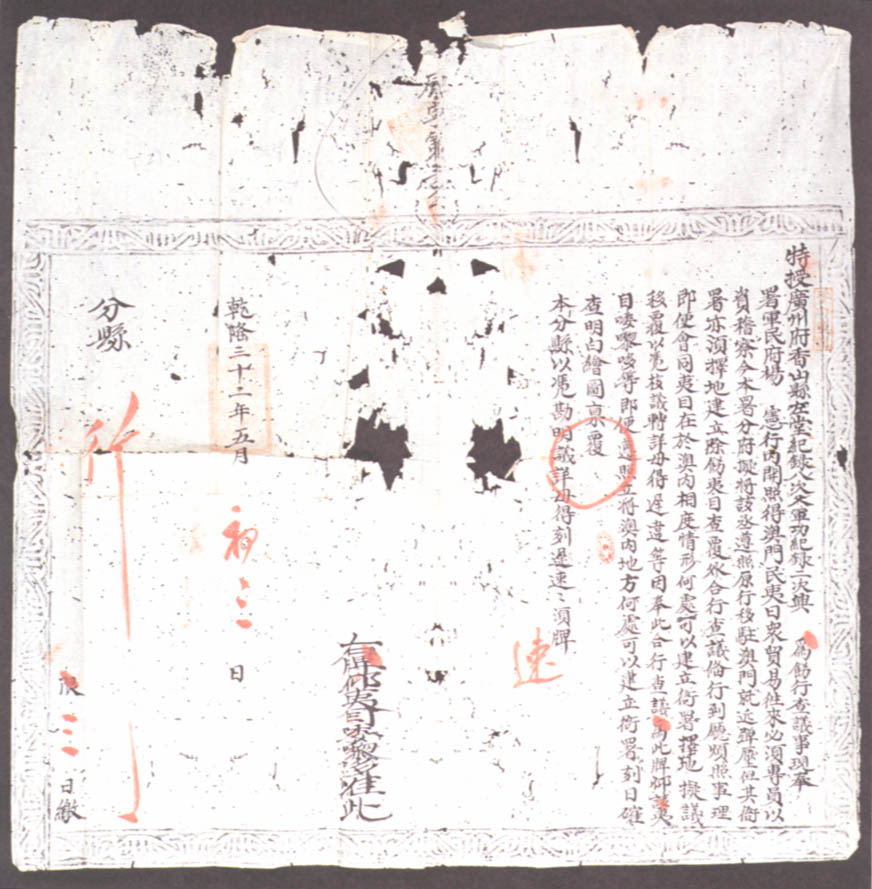 特授廣州府香山縣左堂紀錄八次又軍功紀錄二次興 爲飭行查議事現奉
署軍民府楊 憲行內開照得澳門民夷日衆貿易往來必須專員以
資稽察今本署分府擬將該丞遵照原行移駐澳門就近彈壓但其衙
署亦須擇地建立除飭夷目查覆外合行查議備行到廳煩照事理
即便會同夷目在於澳內相度情形何處可以建立衙署擇地擬議
移覆以憑核議轉詳毋得遲違等因奉此合行查議爲此牌仰該夷
目唩嚟哆等即便遵照立將澳內地方何處可以建立衙署刻日確
查明白繪圖稟覆
本分縣以憑勘明議詳毋得刻遲速速須牌
速
右牌仰夷目唩嚟哆准此
乾隆三十二年五月 初三 日
分縣 行
限 三 日繳